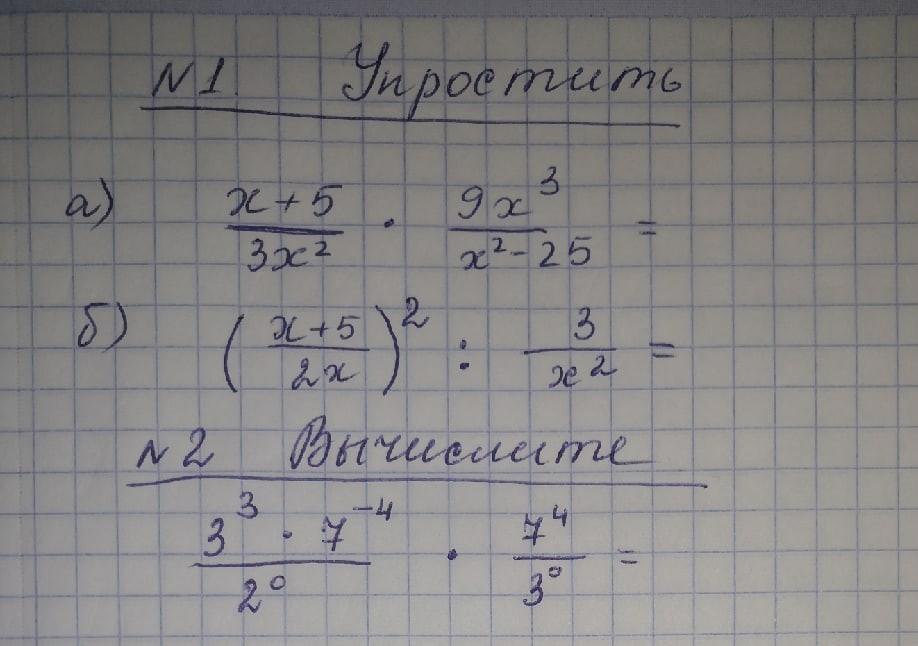 N1. Упростить
а) (x+5)/(3x²) · (9x³)/(x²-25) =
б) ((x+5)/(2x))² : 3/x² =
N2 Вычислите
(3³ · 7⁻⁴)/2⁰ · 7⁴/3⁰ =